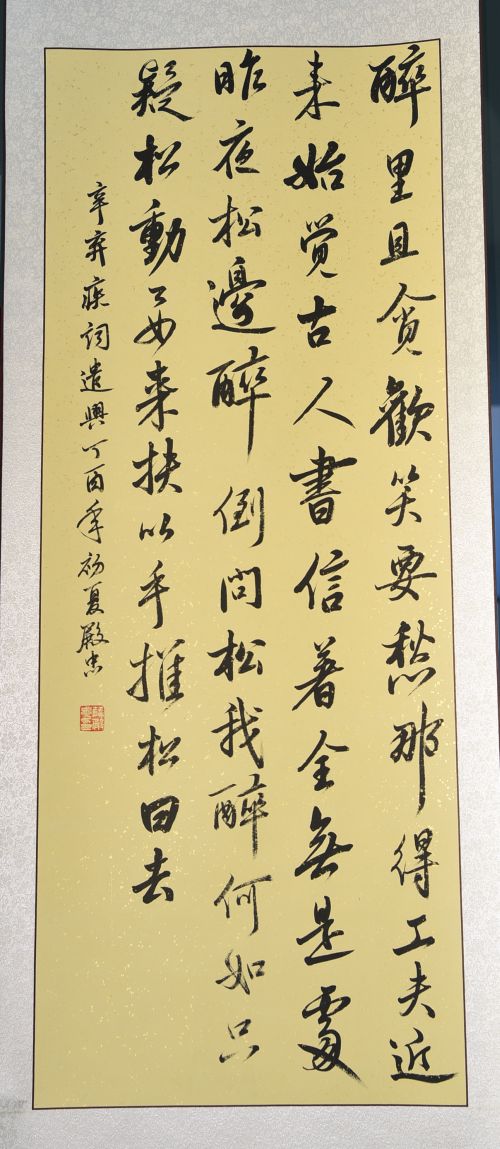 醉里且貪歡笑要愁那得工夫近
来始觉古人書信著全無是處
昨夜松邊醉倒問松我醉何如只
疑松動要来扶以手推松曰去
辛弃疾詞遣興丁酉年初夏殿忠